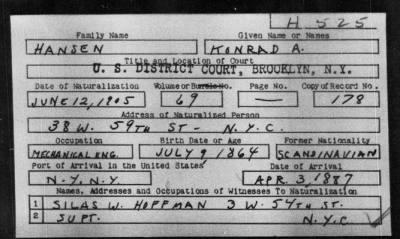 H 525
Family Name Given Name or Names
HANSEN KONRAD A.
Title and Location of Court
U. S. DISTRICT COURT, BROOKLYN, N.Y.
Date of Naturalization Volume or Bundle No. Page No. Copy of Record No.
JUNE 12, 1905 69 — 178
Address of Naturalized Person
38 W. 59TH ST - N.Y.C.
Occupation Birth Date or Age Former Nationality
MECHANICAL ENG. JULY 9 1864 SCANDINAVIAN
Port of Arrival in the United States Date of Arrival
N.Y. N.Y. APR. 3 1887
Names, Addresses and Occupations of Witnesses To Naturalization
1 SILAS W. HOFFMAN 3 W. 54TH ST.
2 SUPT. N.Y.C